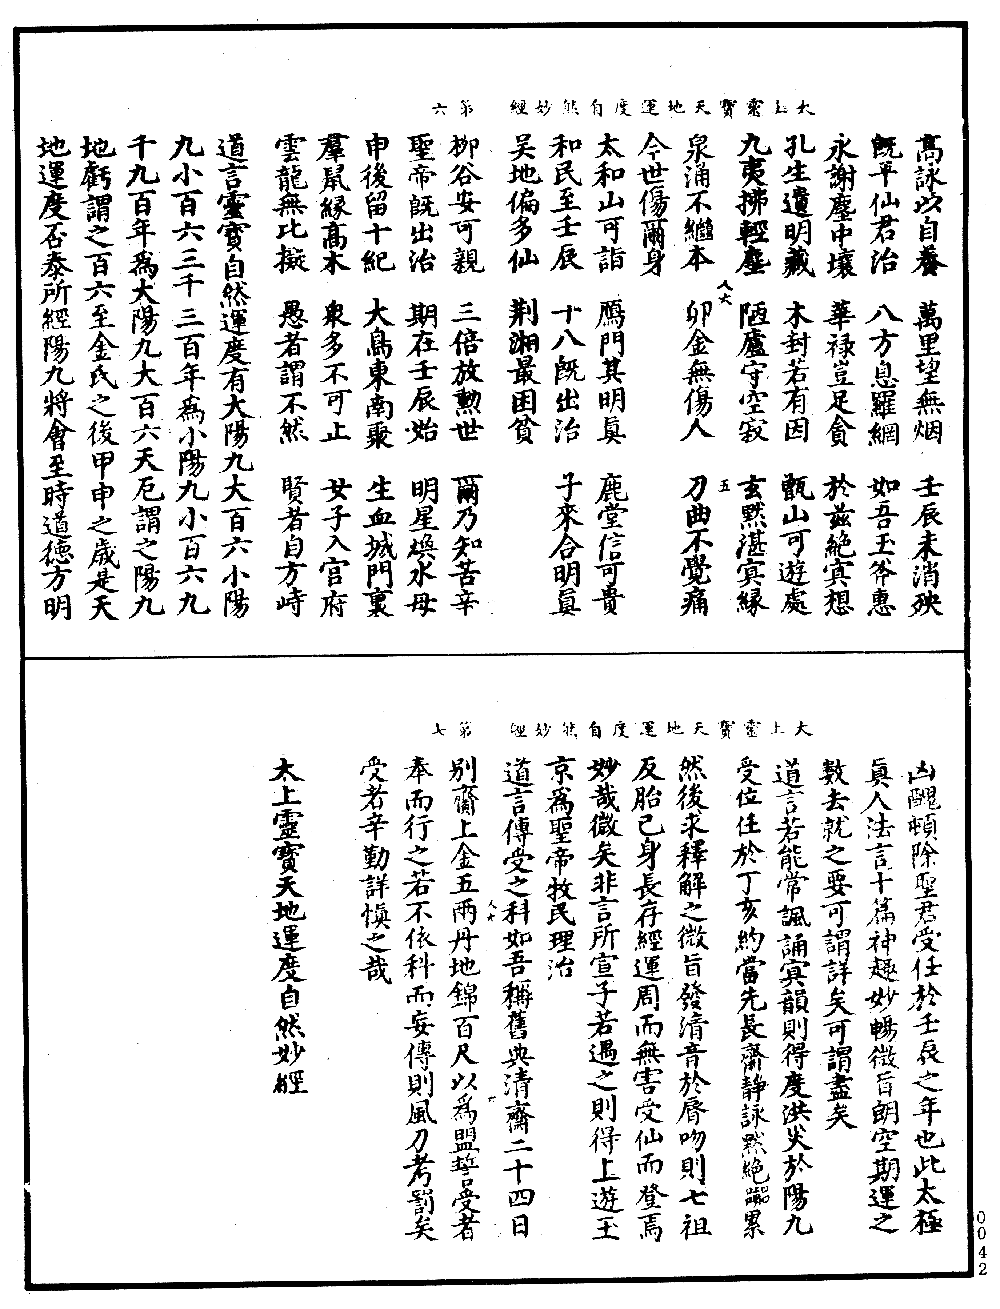 太上靈寶天地運度自然妙經　第六
高詠以自養　萬里望無烟　壬辰未消殃
既平仙君治　八方息羅網　如吾玉斧惠
永謝塵中壤　華祿豈足貪　於兹絶冥想
孔生遺明藏　木封若有因　甑山可遊處
九夷拂輕塵　陋廬守空寂　玄黙湛冥緣
人六　五
泉涌不繼本　卯金無傷人　刀曲不覺痛
今世傷爾身
太和山可詣　鴈門其明真　鹿堂信可貴
和民至壬辰　十八既出治　子來合明真
吴地偏多仙　荆湘最困貧
柳谷安可親　三倍放勲世　爾乃知苦辛
聖帝既出治　期在壬辰始　明星煥水母
申後留十紀　大鳥東南聚　生血城門裏
羣鼠緣高木　衆多不可止　女子入官府
雲龍無比擬　愚者謂不然　賢者自方峙
道言靈寶自然運度有大陽九大百六小陽
九小百六三千三百年爲小陽九小百六九
千九百年爲大陽九大百六天厄謂之陽九
地虧謂之百六至金氏之後甲申之歲是天
地運度否泰所經陽九將會至時道德方明
太上靈寶天地運度自然妙經　第七
凶醜頓除聖君受任於壬辰之年也此太極
真人法言十篇神趣妙暢微旨朗空期運之
數去就之要可謂詳矣可謂盡矣
道言若能常諷誦冥韻則得度洪災於陽九
受位任於丁亥約當先長齋静詠黙絶囂累
然後求釋解之微旨發清音於脣吻則七祖
反胎己身長存經運周而無害受仙而登焉
妙哉微矣非言所宣子若遇之則得上遊玉
京爲聖帝牧民理治
道言傳受之科如吾稱舊典清齋二十四日
别齋上金五兩丹地錦百尺以爲盟誓受者
奉而行之若不依科而妄傳則風刀考罰矣
受者辛勤詳愼之哉
太上靈寶天地運度自然妙經
0042